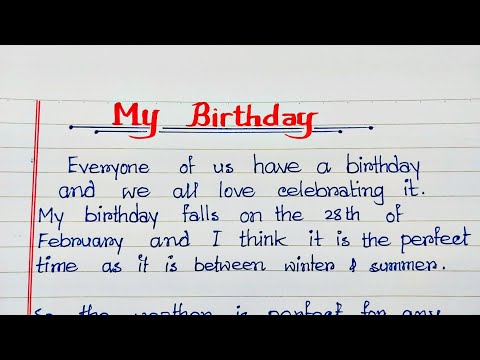 My Birthday
Everyone of us have a birthday
and we all love celebrating it.
My birthday falls on the 28th of
February and I think it is the perfect
time as it is between winter & summer.
So the weather is perfect for any